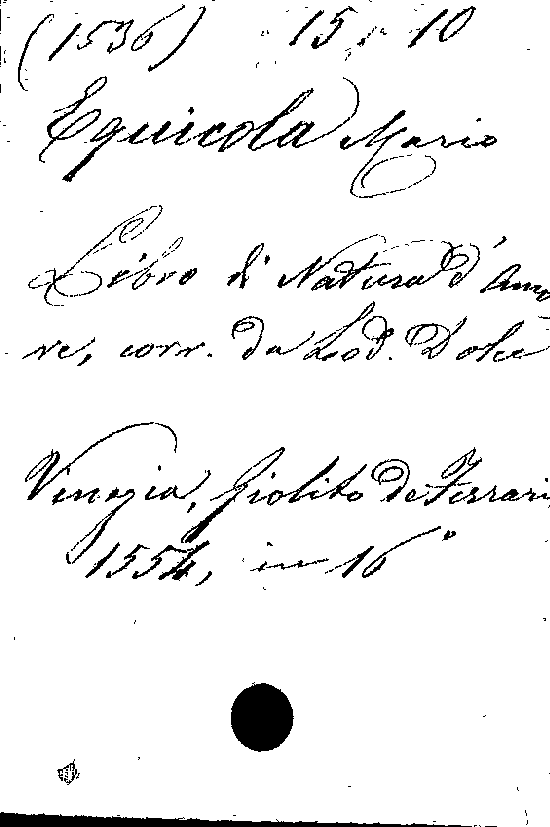 (1536) 15 10
Equicola Mario
Libro di Natura d'Amo-
re, corr. da Lod. Dolce
Venezia, Giolito de Ferrari,
1554, in 16°